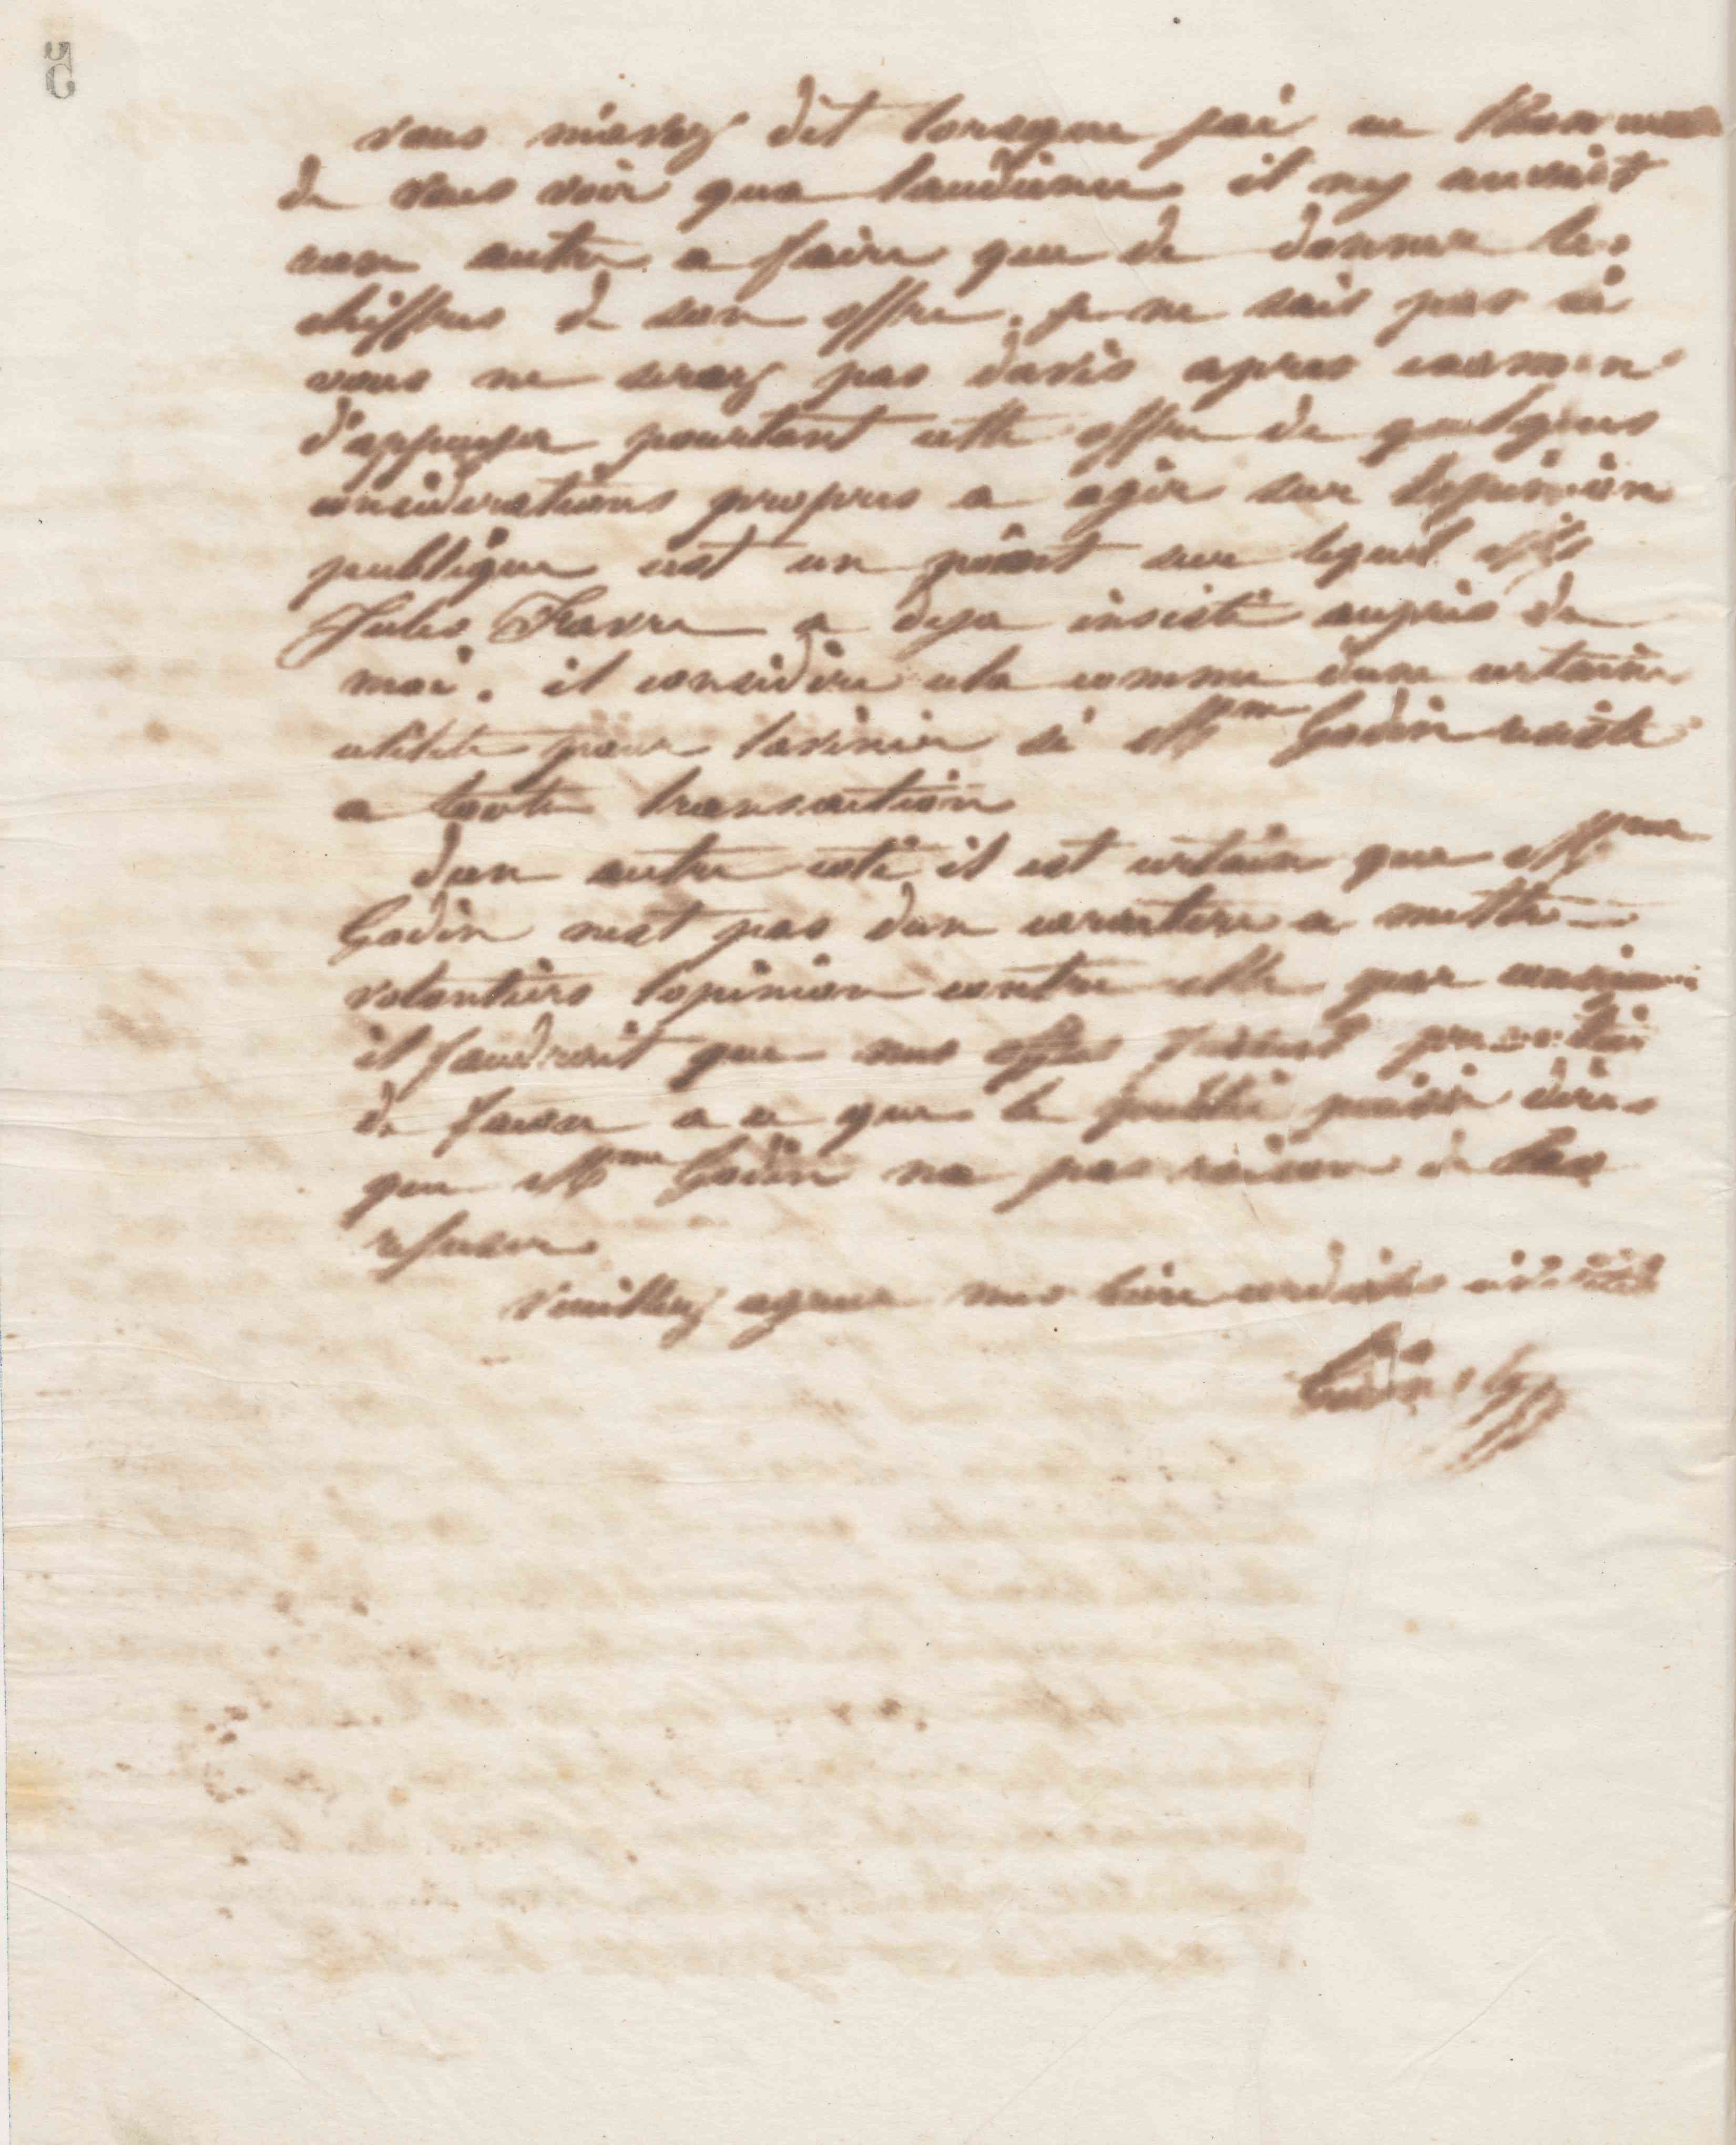 5
vous m'avez dit lorsque j'ai eu l'honneur
de vous voir qua laudience il ny aurait
rien autre a faire que de donner les
chiffres de son offre. je ne sais pas si
vous ne serez pas davis apres examen
d'appuyer pourtant cette offre de quelques
considerations propres a agir sur lopinion
publique cest un point sur lequel Mr
Jules Favre a deja insisté auprès de
moi. il considère cela comme dune certaine
utilité pour lavenir si Mme Godin resiste
a toute transaction
dun autre coté il est certain que Mme
Godin nest pas dun caractere a mettre
volontiers lopinion contre elle par
il faudrait que nos offres fussent
de facon a ce que le public puisse dire
que Mme Godin na pas raison de les
refuser
Veuillez agreer mes bien cordiales civilités
Godin